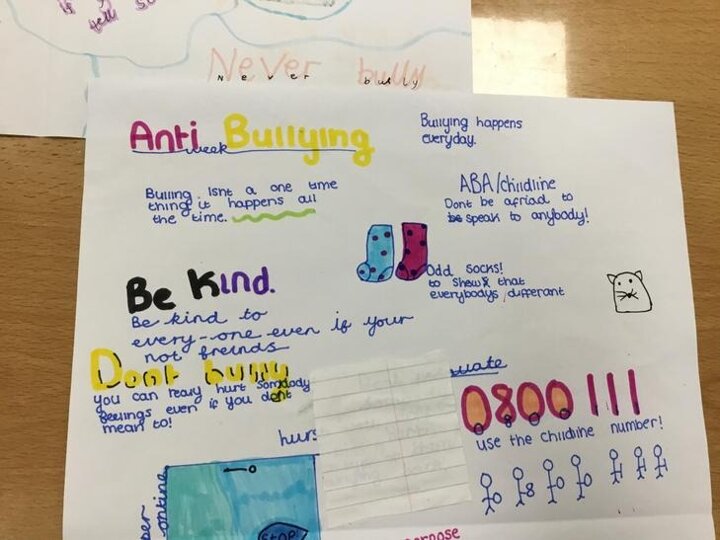 Never bully
Never bully
Anti Bullying
week
Bullying happens
everyday.
Bulling isnt a one time
thing it happens all
the time.
ABA/childline
Dont be afriad to
be speak to anybody!
Odd socks!
to show that
everybodys differant
Be Kind.
Be kind to
every-one even if your
not freinds
Dont bully
you can really hurt somebody
feelings even if you dont
mean to!
0800 111
use the childline number!
online
Stop!